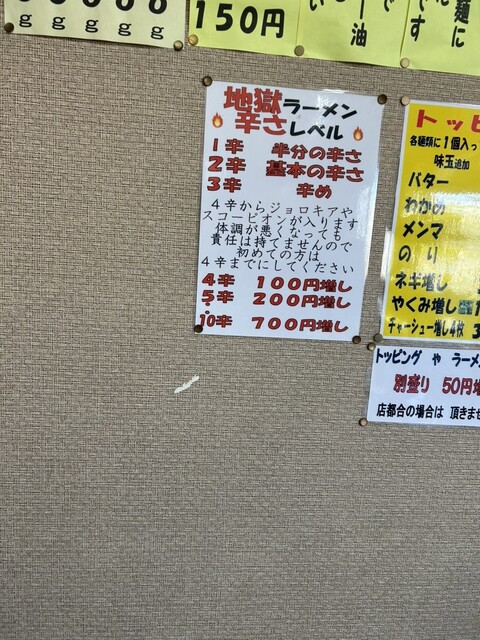 g g g g g
150円
い
ー油
です
麺に
地獄ラーメン
辛さレベル
1辛 半分の辛さ
2辛 基本の辛さ
3辛 辛め
4辛からジョロキアや
スコーピオンが入ります
体調が悪くなっても
責任は持てませんので
初めての方は
4辛までにしてください
4辛 100円増し
5辛 200円増し
:
10辛 700円増し
トッピ
各麺類に1個入っ
味玉追加
バター
わかめ
メンマ
のり
ネギ増し
やくみ増し
チャーシュー増し4枚 3
トッピング や ラーメ
別盛り 50円増
店都合の場合は 頂きませ